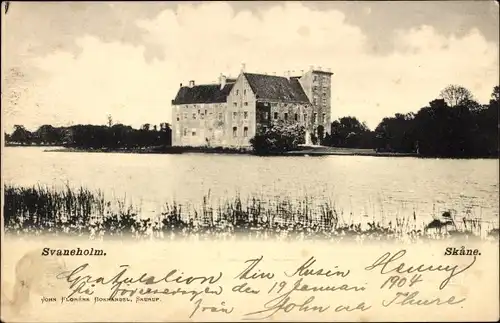 Svaneholm.
Skåne.
Gratulation Din Kusin Henny
på förlovningen den 19 Januari 1904
från John och Thure
JOHN FLORÉNS BOKHANDEL, SKURUP.